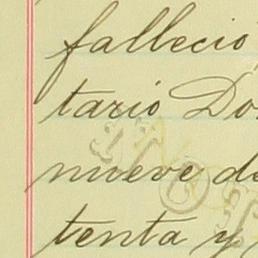 falleció
tario Do
nueve de
tenta y